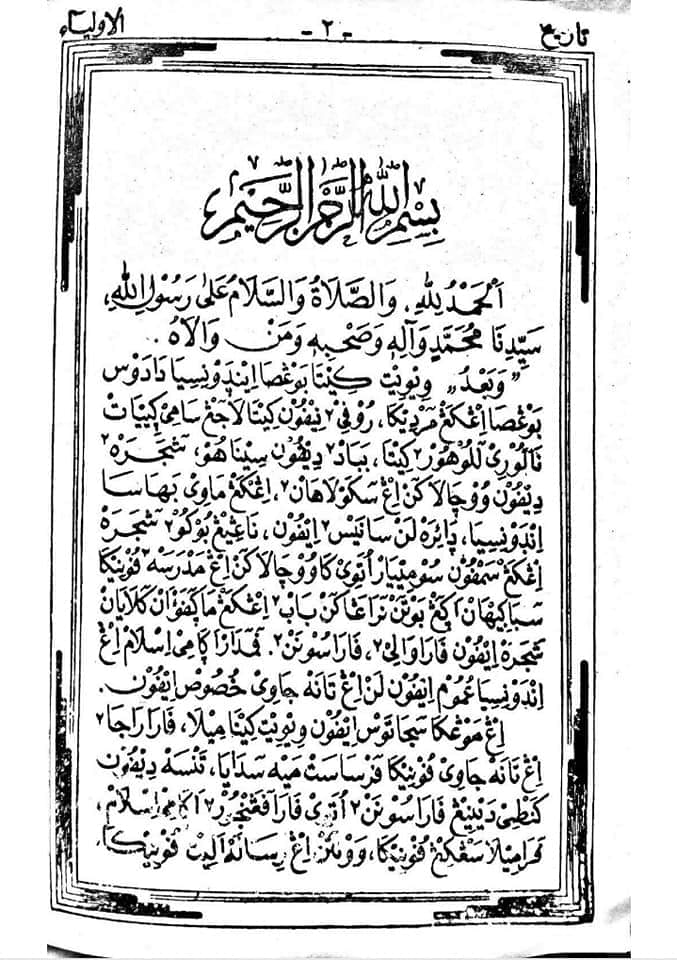 تاريخ - ٢ - الاولياء
بِسْمِ اللهِ الرَّحْمٰنِ الرَّحِيْمِ
اَلْحَمْدُ لِلّٰهِ، وَالصَّلَاةُ وَالسَّلَامُ عَلىٰ رَسُوْلِ اللهِ،
سَيِّدِنَا مُحَمَّدٍ وَآلِهِ وَصَحْبِهِ وَمَنْ وَالَاهُ.
"وَبَعْدُ" ويونيت كيتا بوڠصا ايندونيسيا دادوس
بوڠصا اڠكڠ مرديكا، روڤي٢ نيڤون كيتا لاجڠ سامي كييات
نالوري للوهور٢ كيتا، بباد٢ ديڤون سيناهو، شجره٢
ديڤون ووچالاكن اڠ سكولاهان٢، اڠكڠ ماوي بهاسا
اندونسيا، دائره لن سانيس٢ ايڤون، ناڠيڠ بوكو٢ شجره
اڠكڠ سمڤون سومييار اتوي كاووچالاكن اڠ مدرسه٢ ڤونيكا
سباكيهان اكڠ بوتن نراڠاكن باب٢ اڠكڠ ماڬڤوان كلايان
شجره ايڤون ڤارا والي٢، ڤارا سونن٢. ڤمدار اڬامي اسلام اڠ
اندونسيا عموم ايڤون لن اڠ تانه جاوي خصوص ايڤون.
اڠ موڠكا سجاتوس ايڤون ويونيت كيتا ميلا، ڤارا راجا٢
اڠ تانه جاوي ڤونيكا ڤرساست ميه سدايا، تنسه ديڤون
كنطي دينيڠ ڤارا سونن٢ اتوي ڤارا ڤڠنجور٢ اڬامي اسلام،
ڤرميلا سڠكڠ ڤونيكا، وونتن اڠ رسالة اليت ڤونيكا،